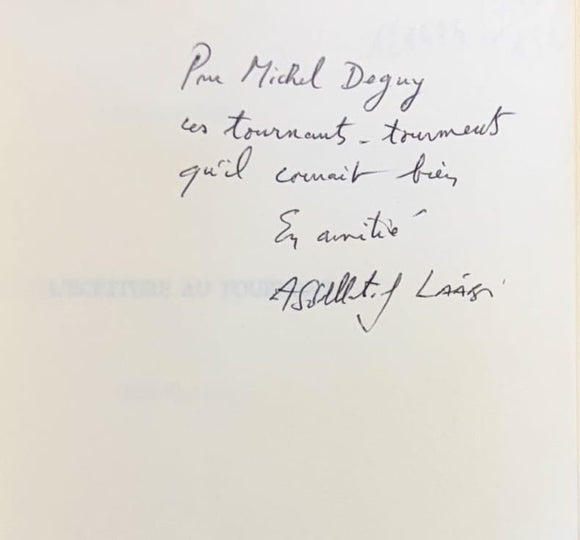 Pour Michel Deguy
ces tournants - tourments
qu'il connait bien
En amitié
Abdellatif Laâbi
L'ECRITURE AU